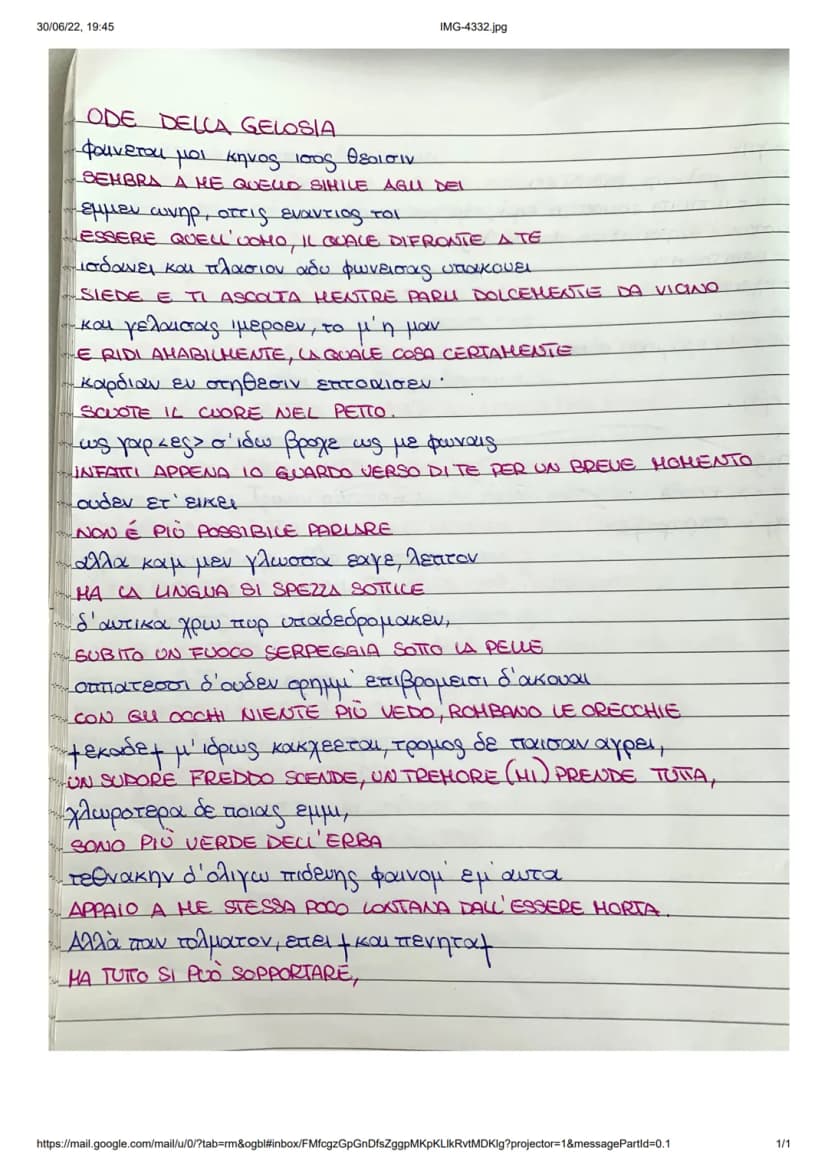 30/06/22, 19:45
IMG-4332.jpg
ODE DELLA GELOSIA
φαινεται μοι κηνος ισος θεοισιν
SEMBRA A ME QUELLO SIMILE AGLI DEI
εμμεν ωνηρ, οττις εναντιος τοι
ESSERE QUELL'UOMO, IL QUALE DIFRONTE A TE
ισδανει και πλασιον αδυ φωνεισας υπακουει
SIEDE E TI ASCOLTA MENTRE PARLI DOLCEMENTE DA VICINO
και γελαισας ιμεροεν, το μ'η μαν
E RIDI AMABILMENTE, LA QUALE COSA CERTAMENTE
καρδιαν εν στηθεσιν επτοαισεν·
SCUOTE IL CUORE NEL PETTO.
ως γαρ <ες> σ'ιδω βροχε ως με φωναις
INFATTI APPENA IO GUARDO VERSO DI TE PER UN BREVE MOMENTO
ουδεν ετ' εικει
NON É PIÙ POSSIBILE PARLARE
αλλα καμ μεν γλωσσα εαγε, λεπτον
MA LA LINGUA SI SPEZZA SOTTILE
δ'αυτικα χρω πυρ υπαδεδρομακεν,
SUBITO UN FUOCO SERPEGGIA SOTTO LA PELLE
οππατεσσι δ'ουδεν ορημμ' επιβρομεισι δ'ακουαι
CON GLI OCCHI NIENTE PIÙ VEDO, ROMBANO LE ORECCHIE
†εκαδε† μ'ιδρως κακχεεται, τρομος δε παισαν αγρει,
UN SUDORE FREDDO SCENDE, UN TREMORE (MI) PRENDE TUTTA,
χλωροτερα δε ποιας εμμι,
SONO PIÙ VERDE DELL'ERBA
τεθνακην δ'ολιγω πιδευης φαινομ' εμ'αυτα
APPAIO A ME STESSA POCO LONTANA DALL'ESSERE MORTA.
Αλλὰ παν τολματον, επει † και πενητα†
MA TUTTO SI PUÒ SOPPORTARE,
https://mail.google.com/mail/u/0/?tab=rm&ogbl#inbox/FMfcgzGpGnDfsZggpMKpKLlkRvtMDKlg?projector=1&messagePartId=0.1
1/1